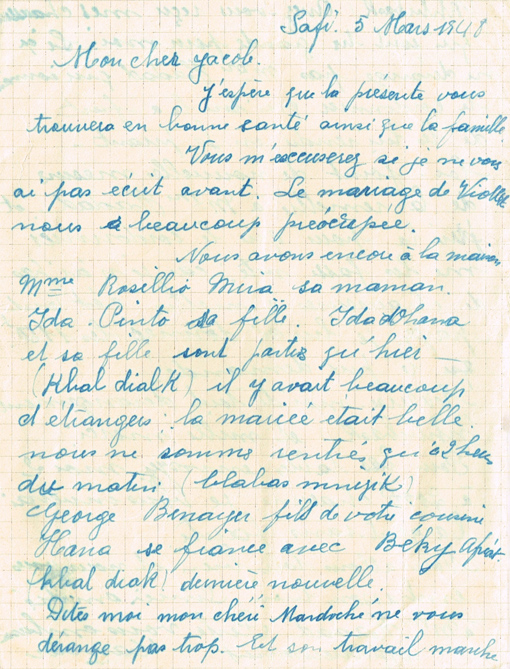 Safi. 5 Mars 1948
Mon cher Yacob.
J'espère que la présente vous
trouvera en bonne santé ainsi que la famille
Vous m'excuserez si je ne vous
ai pas ecrit avant. Le mariage de Viollet
nous a beaucoup préocupée.
Nous avons encore à la maison
Mme Rosillio Mira sa maman.
Ida Pinto sa fille. Ida Ohana
et sa fille sont partis qu'hier —
(Khal dialk) il y avait beaucoup
d'étrangers; la mariée était belle.
nous ne somme rentrés qu'à 2 heures
du matin (blabas mnizik)
George Benayer fils de votre cousine
Hana se fiance avec Béky
(khal diak) dernière nouvelle.
Dites moi mon chéri Mardoché ne vous
dérange pas trop. Est son travail marche